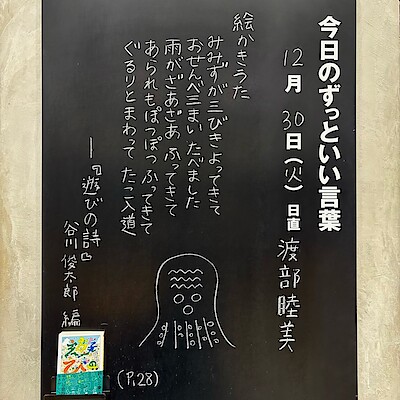 今日のずっといい言葉
12月30日(火) 日直 渡部睦美
絵かきうた
みみずが三びきよってきて
おせんべ三まいたべました
雨がざあざあふってきて
あられもぽつぽつふってきて
ぐるりとまわってたこ入道
―『遊びの詩』
谷川俊太郎 編
(P.28)